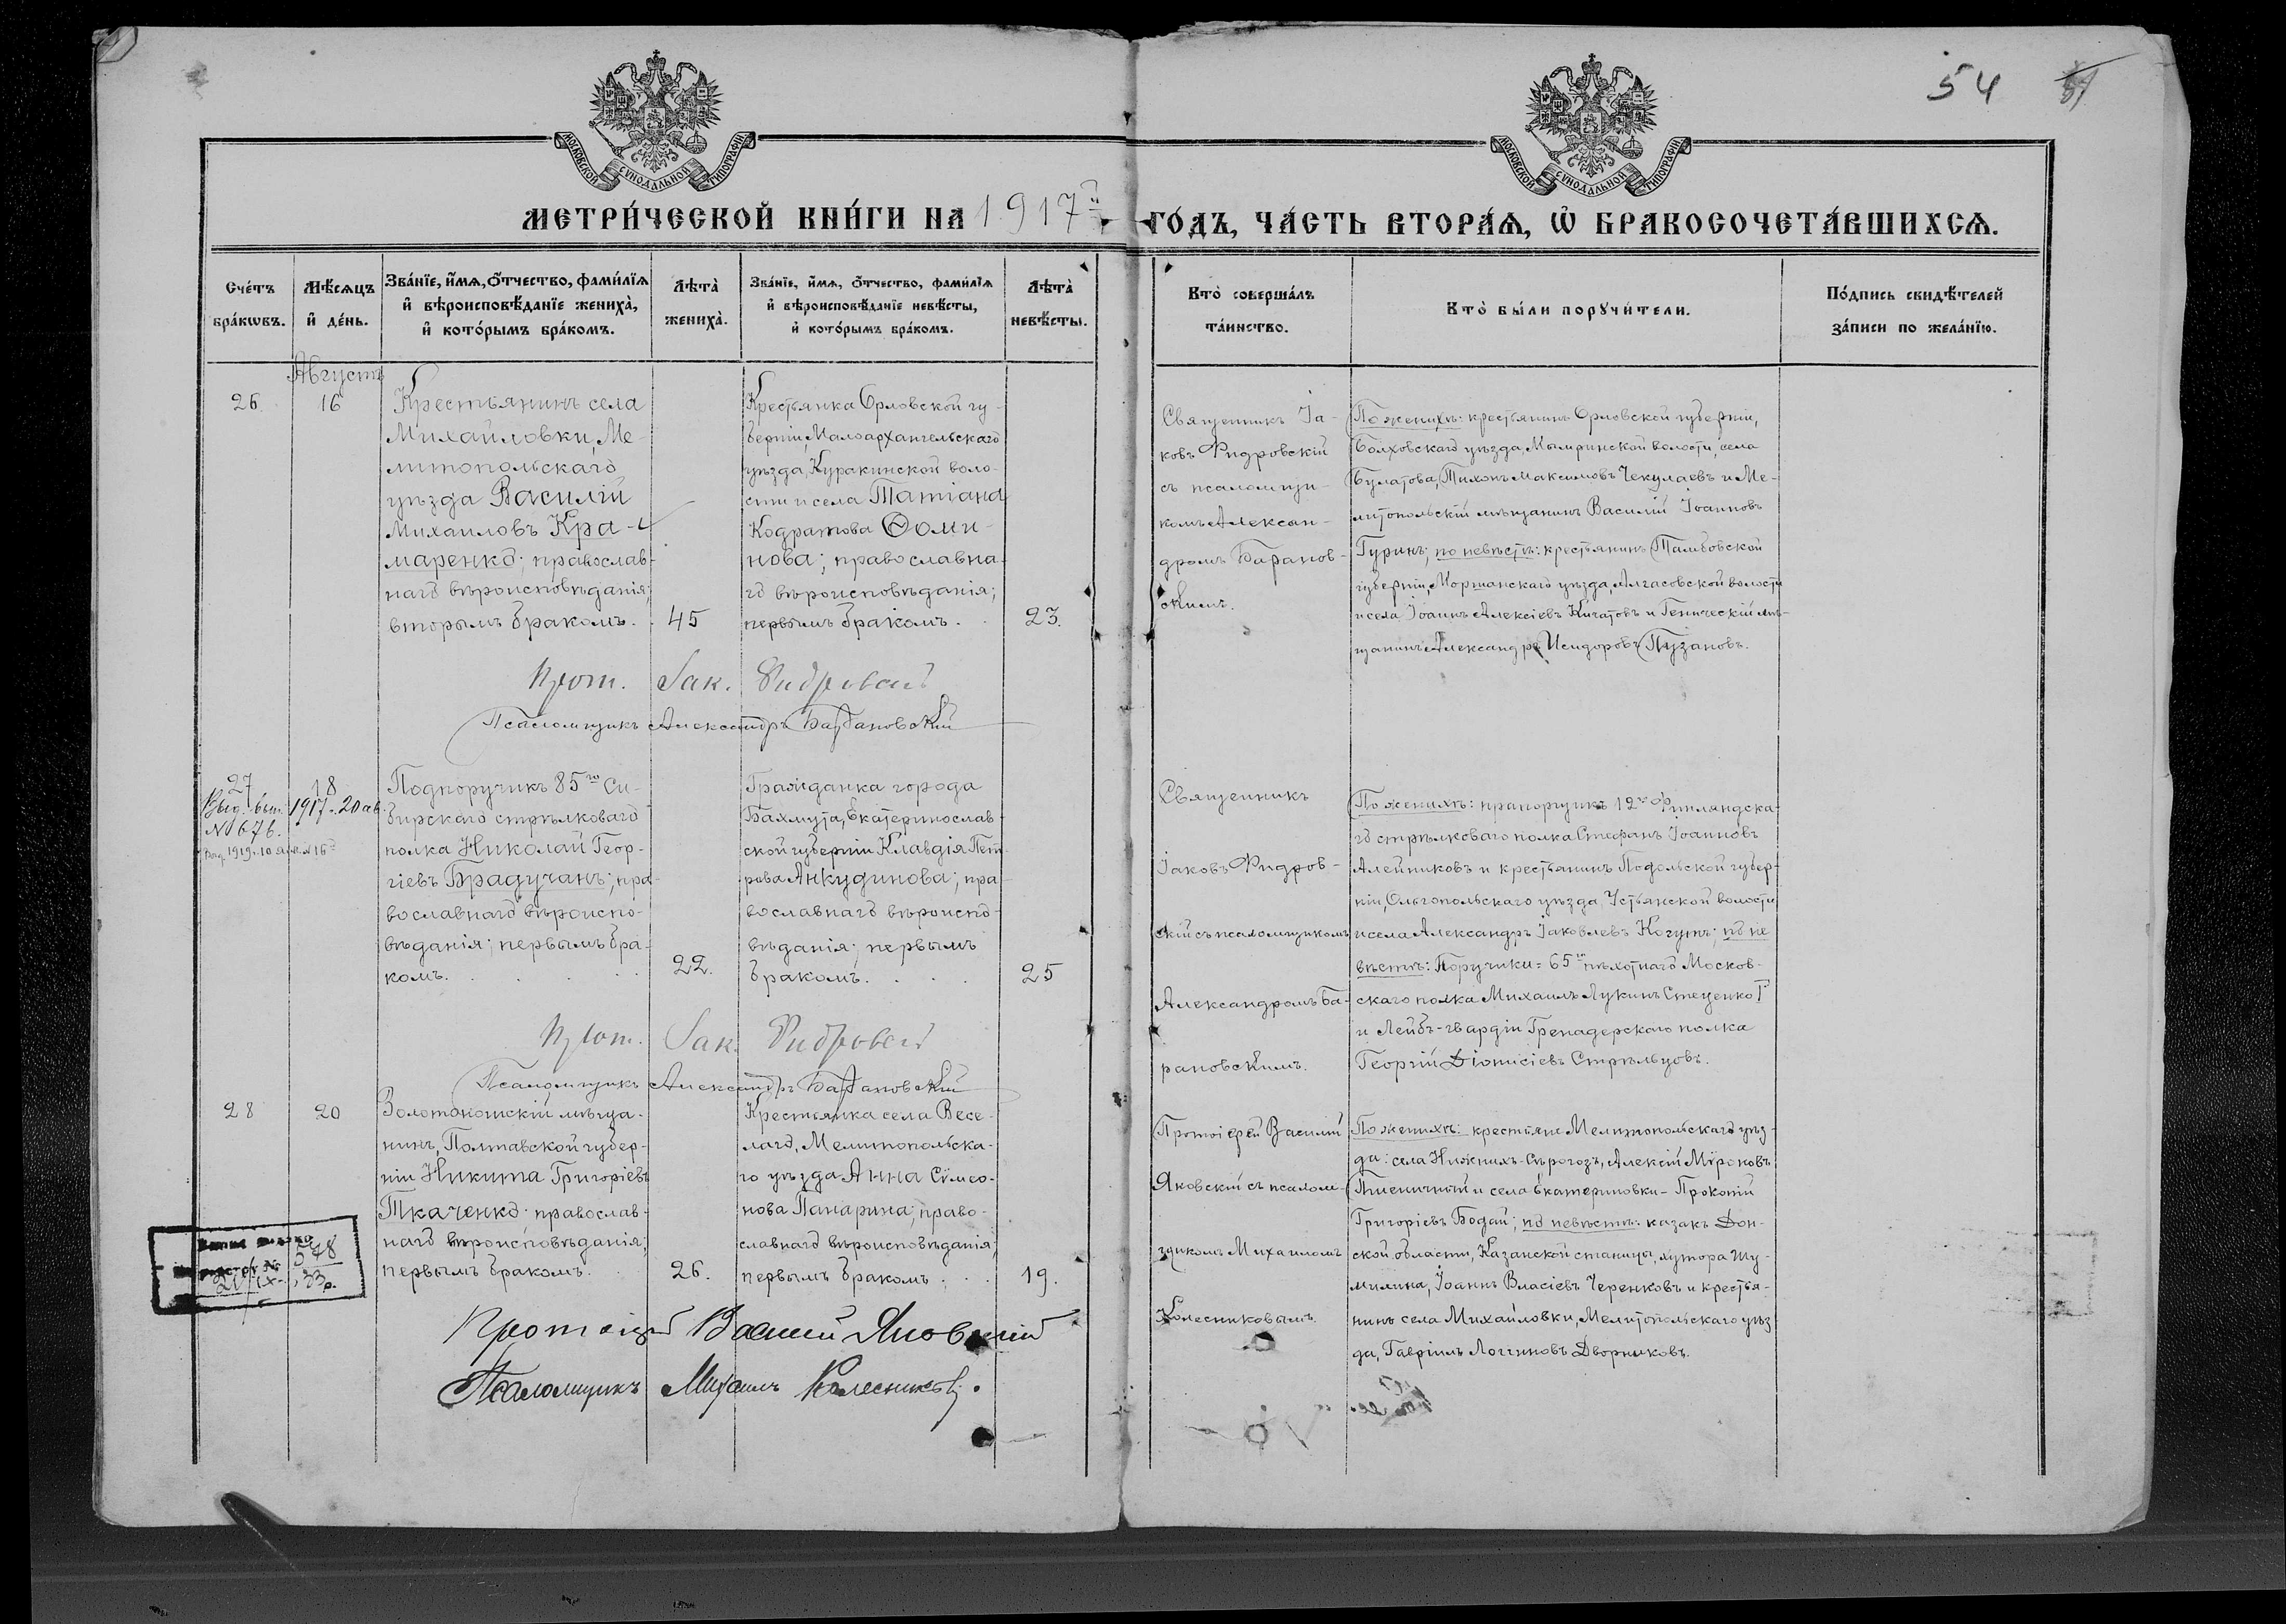 54
МОСКОВСКОЙ СѴНОДАЛЬНОЙ ТИПОГРАФІИ
МОСКОВСКОЙ СѴНОДАЛЬНОЙ ТИПОГРАФІИ
МЕТРИ́ЧЕСКОЙ КНИ́ГИ НА 1917й ГО́ДЪ, ЧА́СТЬ ВТОРА́Я, Ѡ҆ БРАКОСОЧЕТА́ВШИХСѦ.
Сче́тъ бра́кѡвъ.
Мѣ́сяцъ и҆ де́нь.
Зва́нїе, и҆́мя, ѻ҆́тчество, фами́лїя
и҆ вѣроисповѣ́данїе жениха̀,
и҆ кото́рымъ бра́комъ.
Лѣта̀ жениха̀.
Зва́нїе, и҆́мя, ѻ҆́тчество, фами́лїя
и҆ вѣроисповѣ́данїе невѣ́сты,
и҆ кото́рымъ бра́комъ.
Лѣта̀ невѣ́сты.
Кто̀ соверша́лъ
та́инство.
Кто̀ бы́ли порꙋчи́тели.
По́дпись свидѣ́телей
за́писи по жела́нїю.
Августъ
26.
16
Крестьянинъ села
Михайловки, Ме-
литопольскаго
уѣзда Василій
Михаиловъ Кра-
маренко; православ-
наго вѣроисповѣданія;
вторымъ бракомъ.
45
Крестьянка Орловской гу-
берніи, Малоархангельскаго
уѣзда, Куракинской воло-
сти и села Татіана
Кодратова Ѳоми-
нова; православна-
го вѣроисповѣданія;
первымъ бракомъ.
23.
Священникъ Іа-
ковъ Фидровскій
съ псаломщи-
комъ Алексан-
дромъ Баранов-
скимъ.
По женихѣ: крестьянинъ Орловской губерніи,
Болховскаго уѣзда, Мымринской волости, села
Булатова, Тихонъ Максимовъ Чекулаевъ и Ме-
литопольскій мѣщанинъ Василій Іоанновъ
Гуринъ; по невѣстѣ: крестьянинъ Тамбовской
губерніи, Моршанскаго уѣзда, Алгасовской волости
и села Іоаннъ Алексіевъ Кичатовъ и Геническій мѣ-
щанинъ Александръ Исидоровъ Пузановъ.
Прот. Іак. Фидровскій
Псаломщикъ Александръ Барановскій
27
18
Выд. 1917. 20 ав.
№ 676.
Подпоручикъ 85го Си-
бирскаго стрѣлковаго
полка Николай Геор-
гіевъ Брадучанъ; пра-
вославнаго вѣроиспо-
вѣданія; первымъ бра-
комъ.
22.
Гражданка города
Бахмута, Екатеринослав-
ской губерніи Клавдія Пет-
рова Анкудинова; пра-
вославнаго вѣроиспо-
вѣданія; первымъ
бракомъ.
25
Священникъ
Іаковъ Фидров-
скій съ псаломщикомъ
Александромъ Ба-
рановскимъ.
По женихѣ: прапорщикъ 12го Финляндска-
го стрѣлковаго полка Стефанъ Іоанновъ
Алейниковъ и крестьянинъ Подольской губер-
ніи, Ольгопольскаго уѣзда, Устьянской волости
и села Александръ Іаковлевъ Когутъ; по не
вѣстѣ: Поручики: 65го пѣхотнаго Москов-
скаго полка Михаилъ Лукинъ Стеценко
и Лейбъ-гвардіи Гренадерскаго полка
Георгій Діонисіевъ Стрѣльцовъ.
Прот. Іак. Фидровскій
Псаломщикъ Александръ Барановскій
28
20
Золотоношскій мѣща-
нинъ, Полтавской губер-
ніи Никита Григоріевъ
Ткаченко; православ-
наго вѣроисповѣданія;
первымъ бракомъ.
26.
Крестьянка села Весе-
лаго, Мелитопольска-
го уѣзда Анна Сѵмео-
нова Панарина; право-
славнаго вѣроисповѣданія;
первымъ бракомъ.
19.
Протоіерей Василій
Яновскій съ псалом-
щикомъ Михаиломъ
Колесниковымъ.
По женихѣ: крестьяне Мелитопольскаго уѣз-
да: села Нижнихъ-Сѣрогозъ, Алексій Мѵроновъ
Пшеничный и села Екатериновки - Прокопій
Григоріевъ Бодай; по невѣстѣ: казакъ Дон-
ской области, Казанской станицы, хутора Шу-
милина, Іоаннъ Власіевъ Черенковъ и крестья-
нинъ села Михайловки, Мелитопольскаго уѣз
да, Гавріилъ Логгиновъ Дворниковъ.
578
Протоіерей Василій Яновскій
Псаломщикъ Михаилъ Колесниковъ.